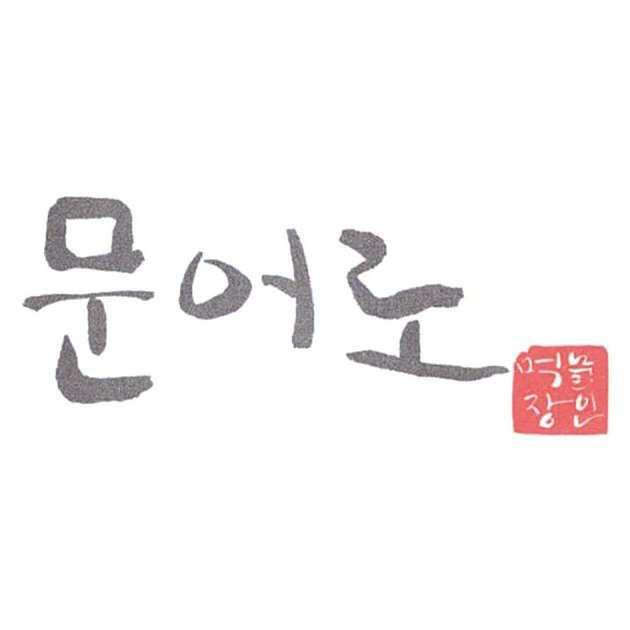 문어로
먹물
장인